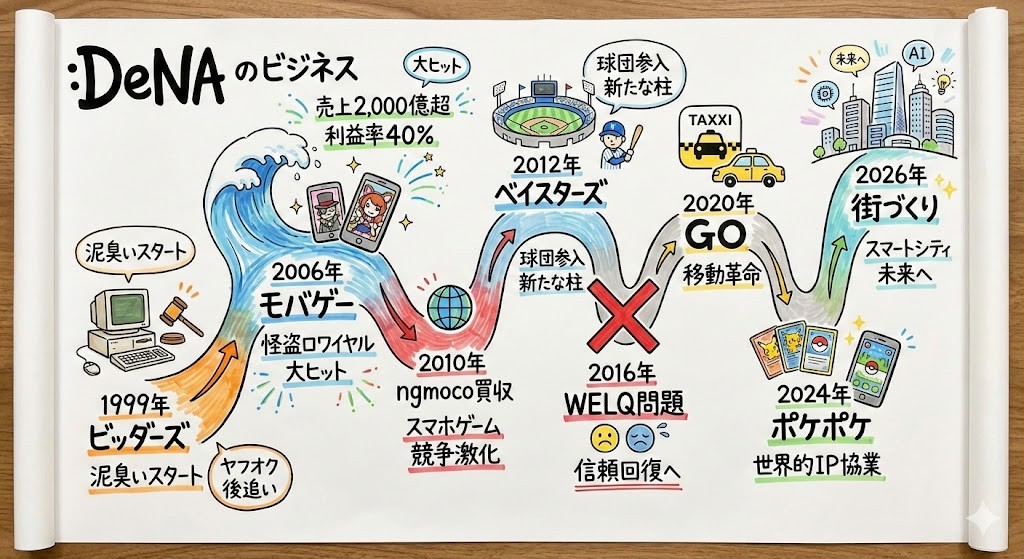 :DeNA のビジネス
泥臭いスタート
1999年
ビッダーズ
泥臭いスタート
ヤフオク
後追い
大ヒット
売上2,000億超
利益率40%
2006年
モバゲー
怪盗ロワイヤル
大ヒット
2010年
ngmoco買収
スマホゲーム
競争激化
球団参入
新たな柱
2012年
ベイスターズ
球団参入
新たな柱
2016年
WELQ問題
信頼回復へ
TAXXI
2020年
GO
移動革命
2024年
ポケポケ
世界的IP協業
未来へ
AI
2026年
街づくり
スマートシティ
未来へ